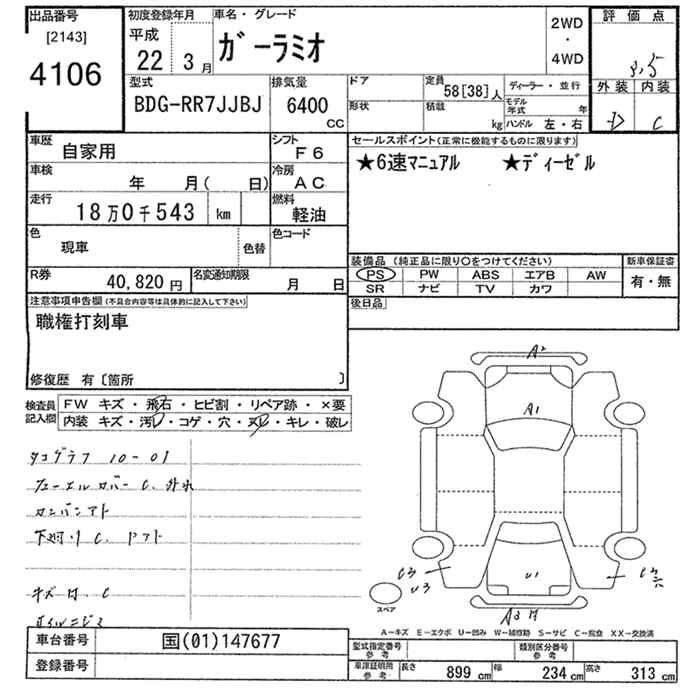 出品番号
[2143]
4106
初度登録年月
平成
22 3 月
車名・グレード
ガーラミオ
2WD
・
4WD
評価点
3.5
外装 内装
D C
型式
BDG-RR7JJBJ
排気量
6400
CC
ドア
形状
定員
58[38]人
積載
kg
ディーラー・並行
モデル年式 年
ハンドル 左・右
車歴
自家用
シフト
F6
車検
年 月( 日)
冷房
AC
走行
18万0千543 km
燃料
軽油
色
現車
色替
色コード
R券
40,820 円
名変通知期限
月 日
セールスポイント(正常に機能するものに限ります)
★6速マニュアル ★ディーゼル
装備品 (純正品に限り〇をつけてください)
新車保証書
PS PW ABS エアB AW
SR ナビ TV カワ
有・無
後日品
注意事項申告欄(不具合内容等は具体的に記入して下さい)
職権打刻車
修復歴 有〔箇所 〕
検査員
記入欄
FW キズ・飛石・ヒビ割・リペア跡・×要
内装 キズ・汚レ・コゲ・穴・ヌレ・キレ・破レ
タコグラフ 10-01
フューエルカバー C. 外れ
カンバンアト
下廻り C. ドアト
キズ 凹. C
オイルニジミ
A2
A1
C3
U3
U1
C3
A3 凹
スペア
A-キズ E-エクボ U-凹み W-補修跡 S-サビ C-腐食 XX-交換済
車台番号
国(01)147677
登録番号
型式指定番号
参考
類別区分番号
参考
車庫証明用
参考
長さ 899 cm 幅 234 cm 高さ 313 cm